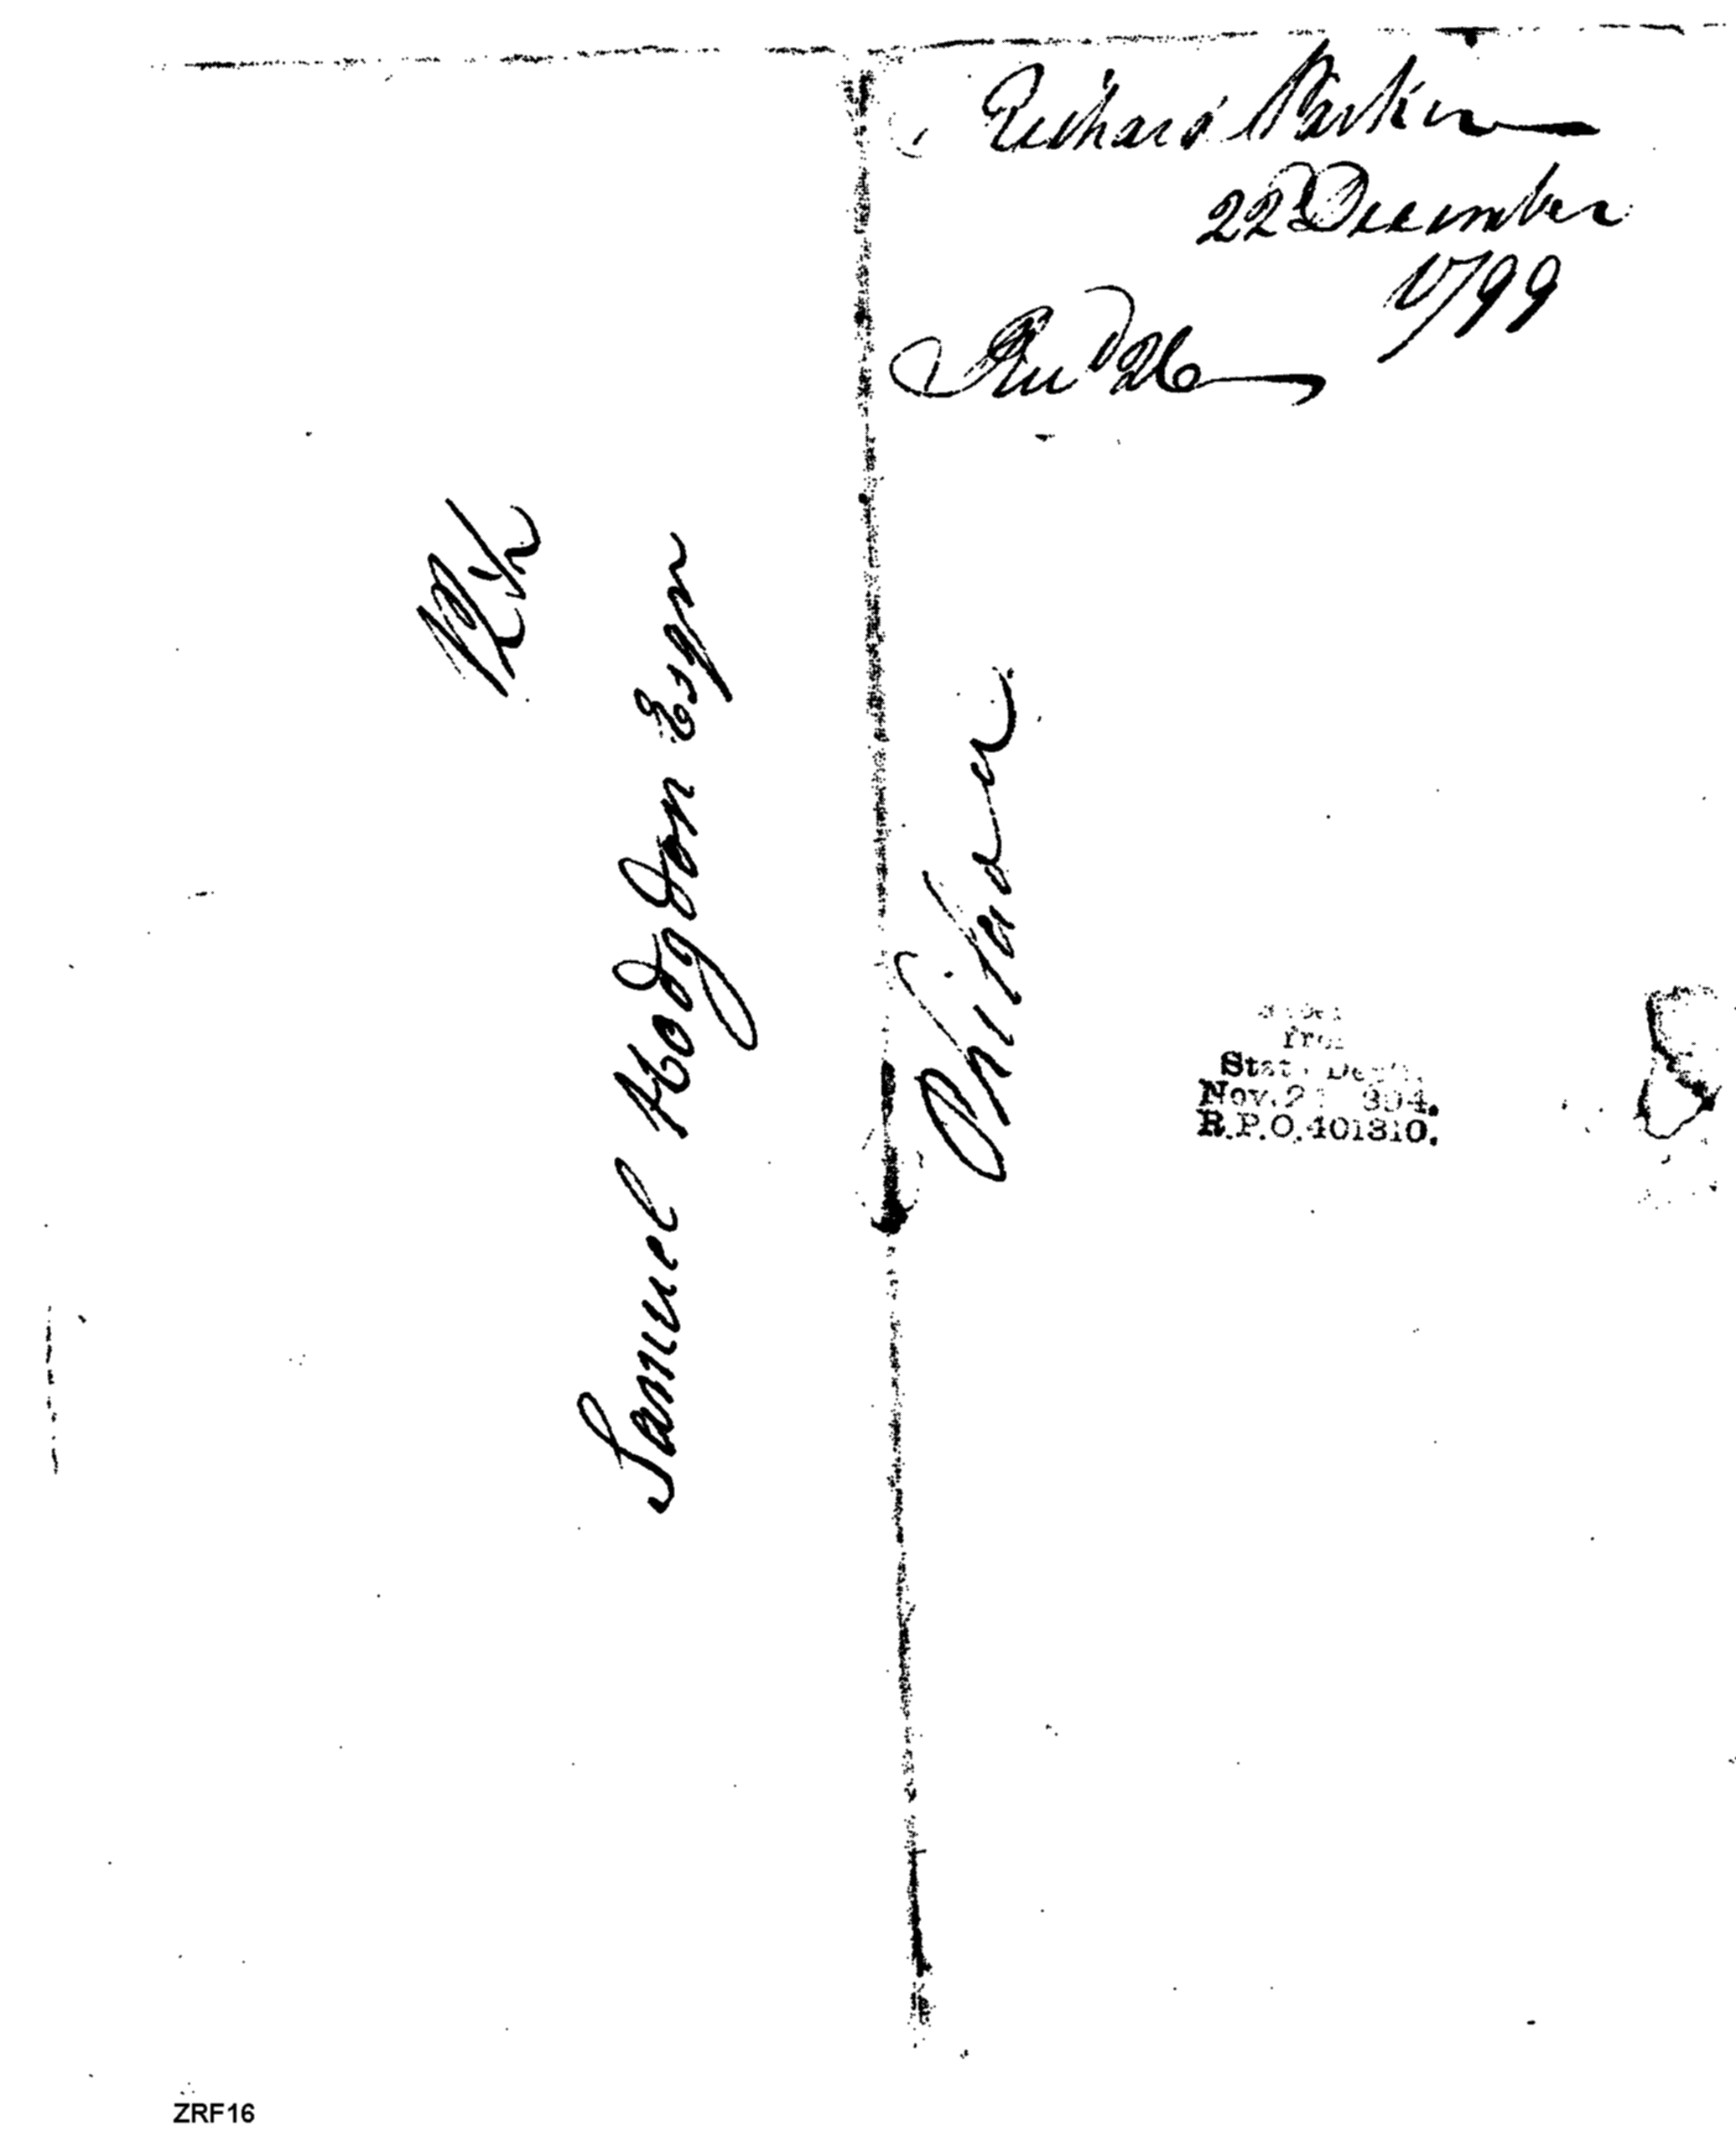 Richard Parker
22 December
1799
Rec'd 26
Samuel Hodgdon Esqr
Philada
from
State Dept.
Nov. 2
R.P.O. 401310.
ZRF16